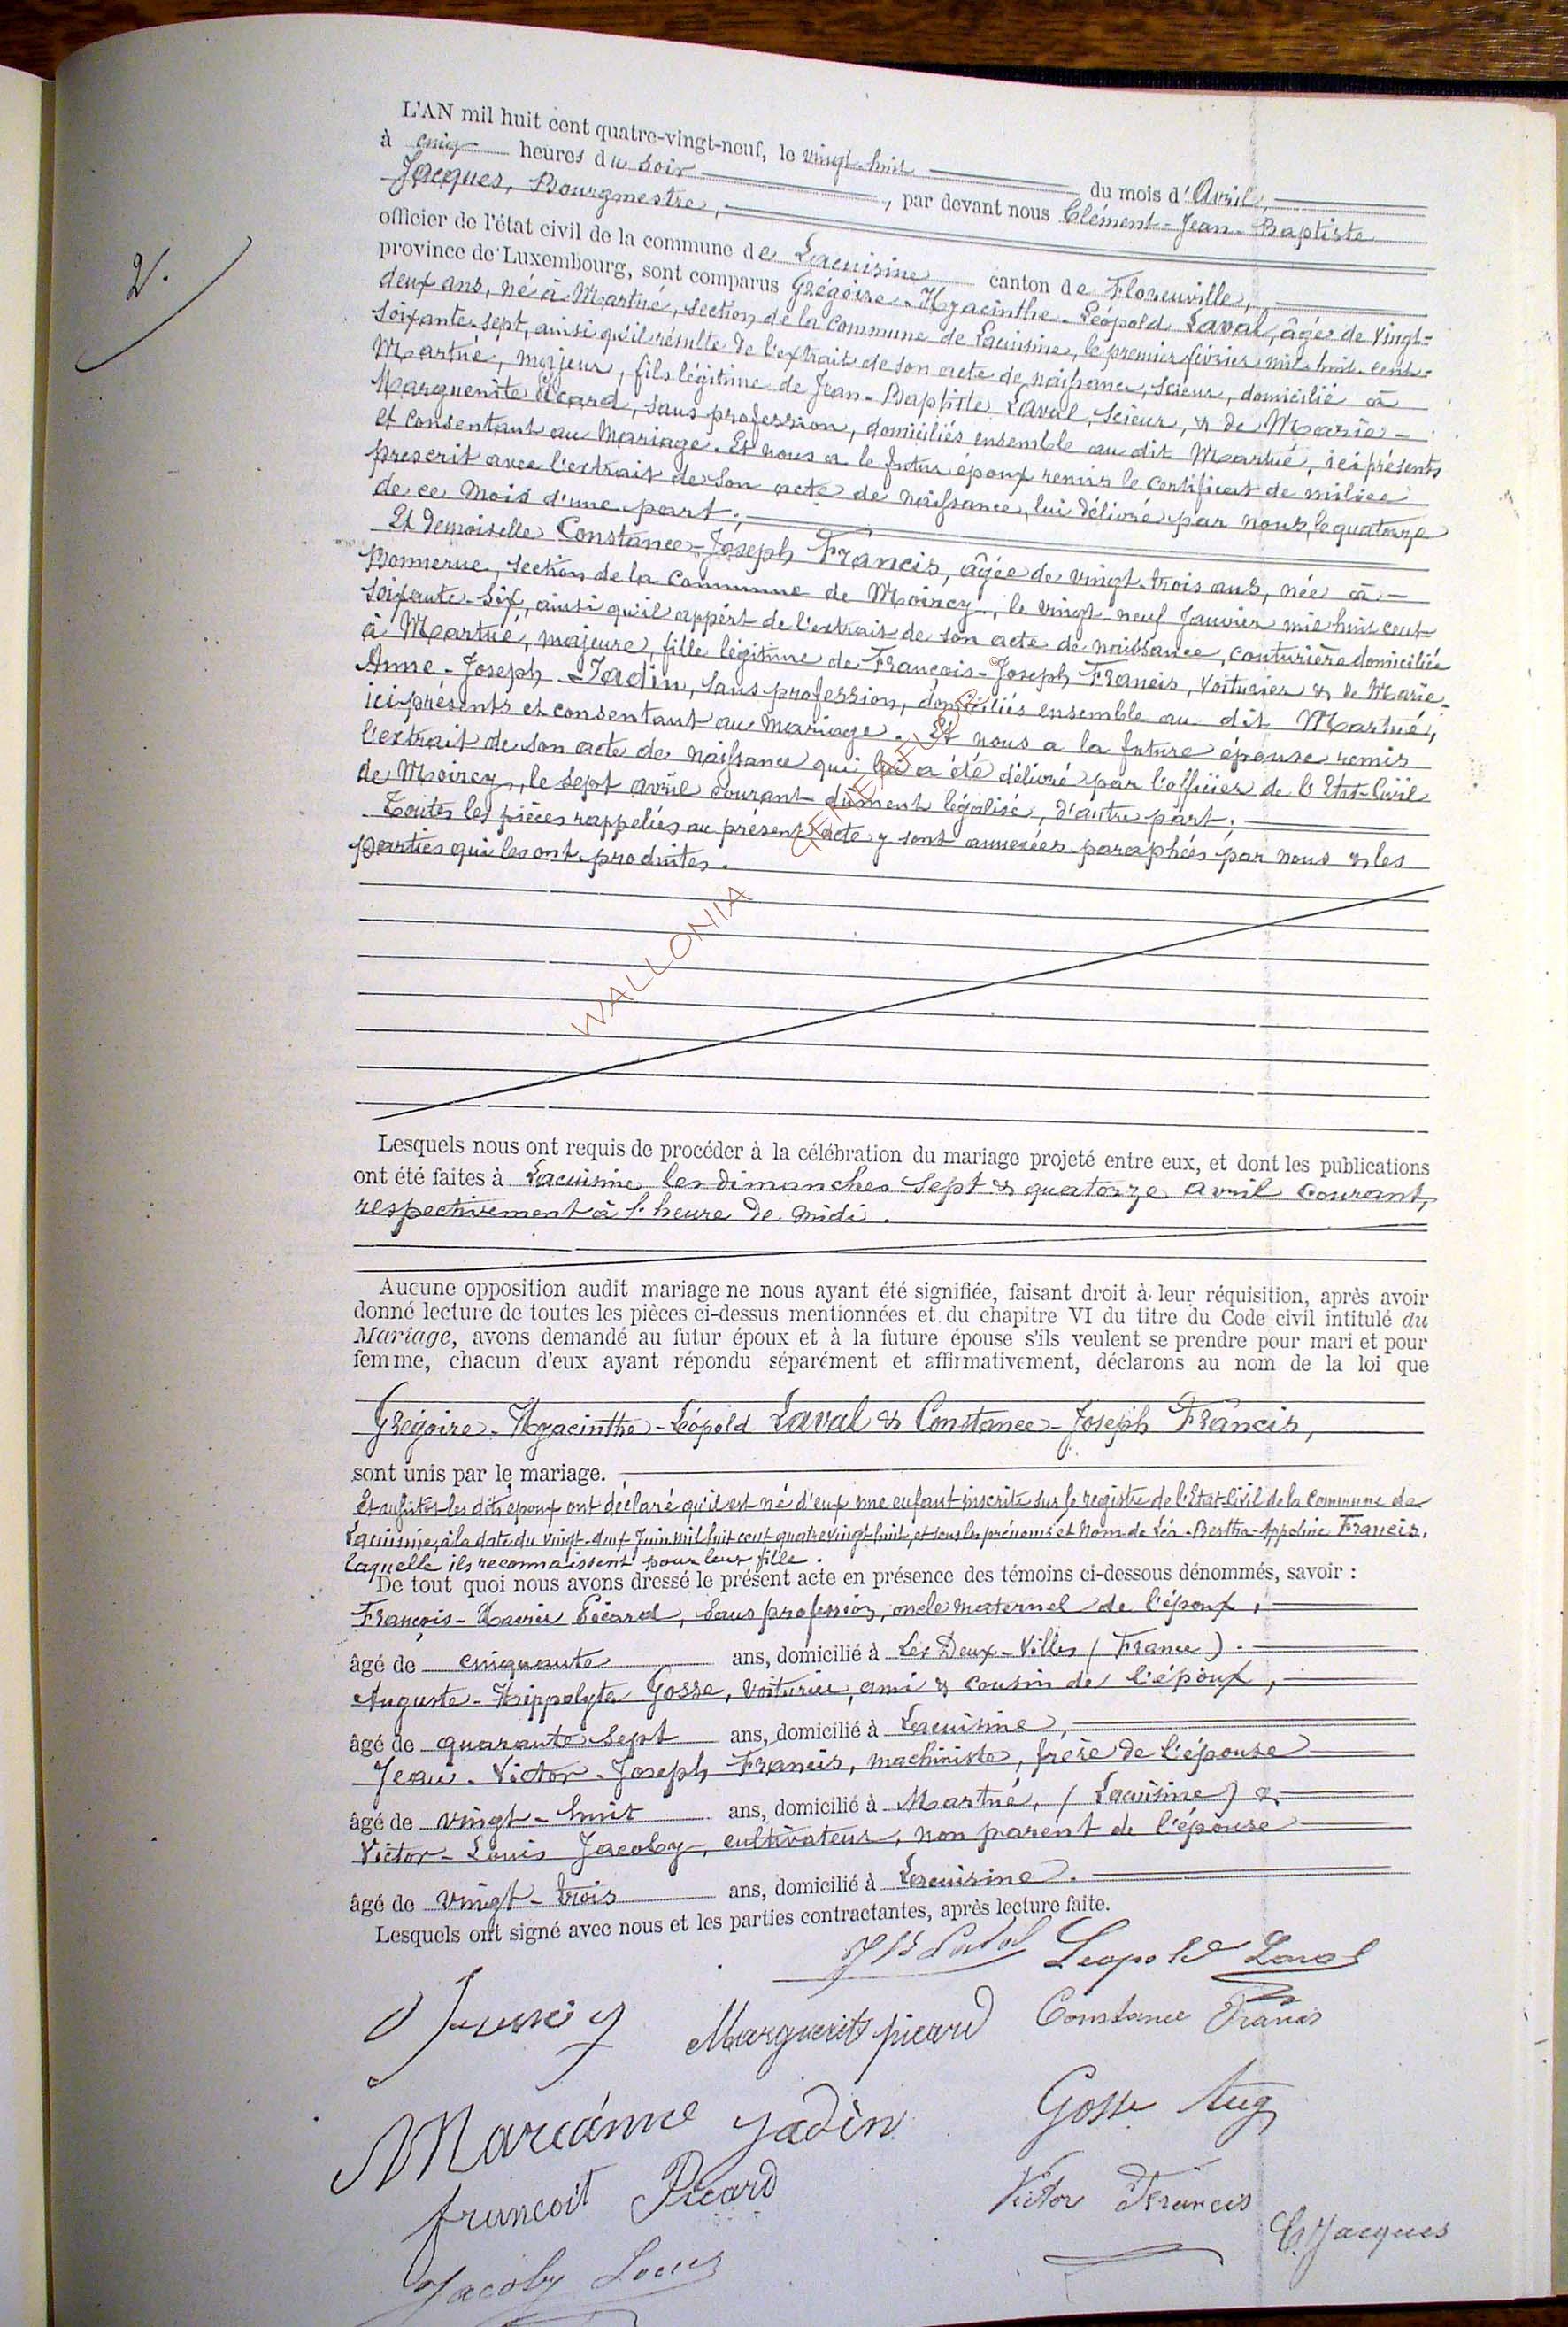 2.
L'AN mil huit cent quatre-vingt-neuf, le vingt-huit du mois d'Avril,
à cinq heures du soir, par devant nous Clément-Jean-Baptiste
Jacques, Bourgmestre,
officier de l'état civil de la commune de Lacuisine canton de Florenville,
province de Luxembourg, sont comparus Grégoire-Hyacinthe-Léopold Laval, âgé de vingt-
deux ans, né à Martué, section de la commune de Lacuisine, le premier février mil huit cent-
soixante-sept, ainsi qu'il résulte de l'extrait de son acte de naissance, scieur, domicilié à
Martué, majeur, fils légitime de Jean-Baptiste Laval, scieur, & de Marie-
Marguerite Picard, sans profession, domiciliés ensemble au dit Martué, ici présents
et consentant au mariage. Et nous a le futur époux remis le certificat de milice
prescrit avec l'extrait de son acte de naissance, lui délivré par nous, le quatorze
de ce mois d'une part;
Et Demoiselle Constance-Joseph Francis, âgée de vingt-trois ans, née à
Bonnerue, section de la commune de Moircy, le vingt neuf Janvier mil huit cent
soixante-six, ainsi qu'il appert de l'extrait de son acte de naissance, couturière domiciliée
à Martué, majeure, fille légitime de François-Joseph Francis, voiturier & de Marie-
Anne-Joseph Jadin, sans profession, domiciliés ensemble au dit Martué,
ici présents et consentant au mariage. Et nous a la future épouse remis
l'extrait de son acte de naissance qui lui a été délivré par l'officier de l'Etat-Civil
de Moircy, le sept avril courant dûment légalisé, d'autre part.
Toutes les pièces rappelées au présent acte y sont annexées paraphées par nous & les
parties qui les ont produites.
WALLONIA GENEAFLUX
Lesquels nous ont requis de procéder à la célébration du mariage projeté entre eux, et dont les publications
ont été faites à Lacuisine les dimanches sept & quatorze avril courant,
respectivement à l'heure de midi.
Aucune opposition audit mariage ne nous ayant été signifiée, faisant droit à leur réquisition, après avoir
donné lecture de toutes les pièces ci-dessus mentionnées et du chapitre VI du titre du Code civil intitulé du
Mariage, avons demandé au futur époux et à la future épouse s'ils veulent se prendre pour mari et pour
femme, chacun d'eux ayant répondu séparément et affirmativement, déclarons au nom de la loi que
Grégoire-Hyacinthe-Léopold Laval & Constance-Joseph Francis,
sont unis par le mariage.
Et aussitôt les dits époux ont déclaré qu'il est né d'eux une enfant inscrite sur le registre de l'Etat-Civil de la Commune de
Lacuisine, à la date du vingt-deux Juin mil huit cent quatre vingt huit, et sous les prénoms et nom de Léa-Bertha-Appoline Francis,
laquelle ils reconnaissent pour leur fille.
De tout quoi nous avons dressé le présent acte en présence des témoins ci-dessous dénommés, savoir :
François-Xavier Picard, sans profession, oncle maternel de l'époux,
âgé de cinquante ans, domicilié à Les Deux-Villes (France).
Auguste-Hippolyte Gosse, voiturier, ami & cousin de l'époux,
âgé de quarante sept ans, domicilié à Lacuisine,
Jean-Victor-Joseph Francis, machiniste, frère de l'épouse
âgé de vingt-huit ans, domicilié à Martué, (Lacuisine) &
Victor-Louis Jacoby, cultivateur, non parent de l'épouse
âgé de vingt-trois ans, domicilié à Lacuisine.
Lesquels ont signé avec nous et les parties contractantes, après lecture faite.
JB Laval Leopold Laval
Marguerite picard Constance Francis
Marianne Jadin Gosse Aug
francoit Picard Victor Francis
C. Jacques
Jacoby Louis